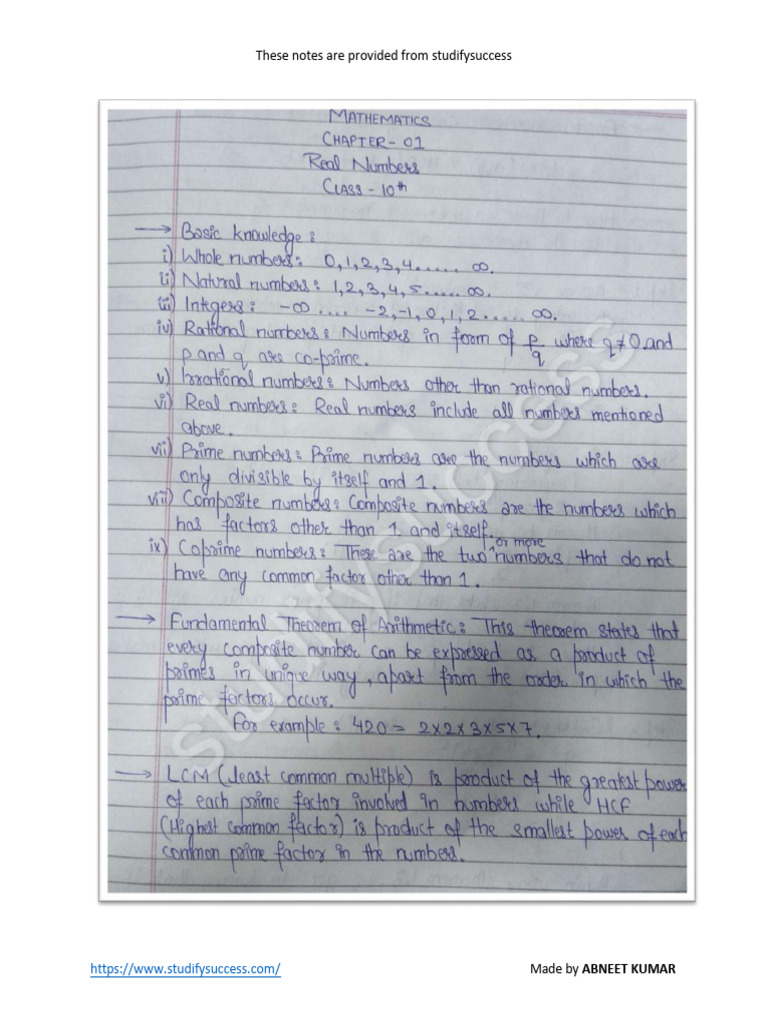 These notes are provided from studifysuccess
MATHEMATICS
CHAPTER - 01
Real Numbers
CLASS - 10th
→ Basic knowledge :
i) Whole numbers : 0, 1, 2, 3, 4...... ∞.
ii) Natural numbers : 1, 2, 3, 4, 5..... ∞.
iii) Intgers : -∞ .... -2, -1, 0, 1, 2..... ∞.
iv) Rational numbers : Numbers in form of p/q where q ≠ 0 and
p and q are co-prime.
v) Irrational numbers : Numbers other than rational numbers.
vi) Real numbers : Real numbers include all numbers mentioned
above.
vii) Prime numbers : Prime numbers are the numbers which are
only divisible by itself and 1.
viii) Composite numbers : Composite numbers are the numbers which
has factors other than 1 and itself.
ix) Coprime numbers : These are the two or more numbers that do not
have any common factor other than 1.
→ Fundamental Theorem of Arithmetic : This theorem states that
every composite number can be expressed as a product of
primes in unique way, apart from the order in which the
prime factors occur.
For example : 420 = 2×2×3×5×7.
→ LCM (Least common multiple) is product of the greatest power
of each prime factor involved in numbers while HCF
(Highest common factor) is product of the smallest power of each
common prime factor in the numbers.
studifysuccess
https://www.studifysuccess.com/ Made by ABNEET KUMAR